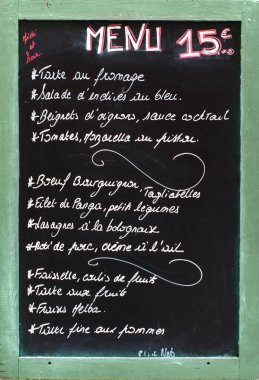 Midi
et
Soir
MENU 15€
* Tarte au fromage
* Salade d'endives au bleu.
* Beignets d'oignons, sauce cocktail
* Tomates, Mozarella au
* Boeuf Bourguignon, Tagliatelles
* Filet de Panga, petits légumes
* Lasagnes à la bolognaise
* Roti de porc, crème à l'ail
* Faisselle, coulis de fruits
* Tarte aux fruits
* Fraises Melba.
* Tarte fine aux pommes
Net